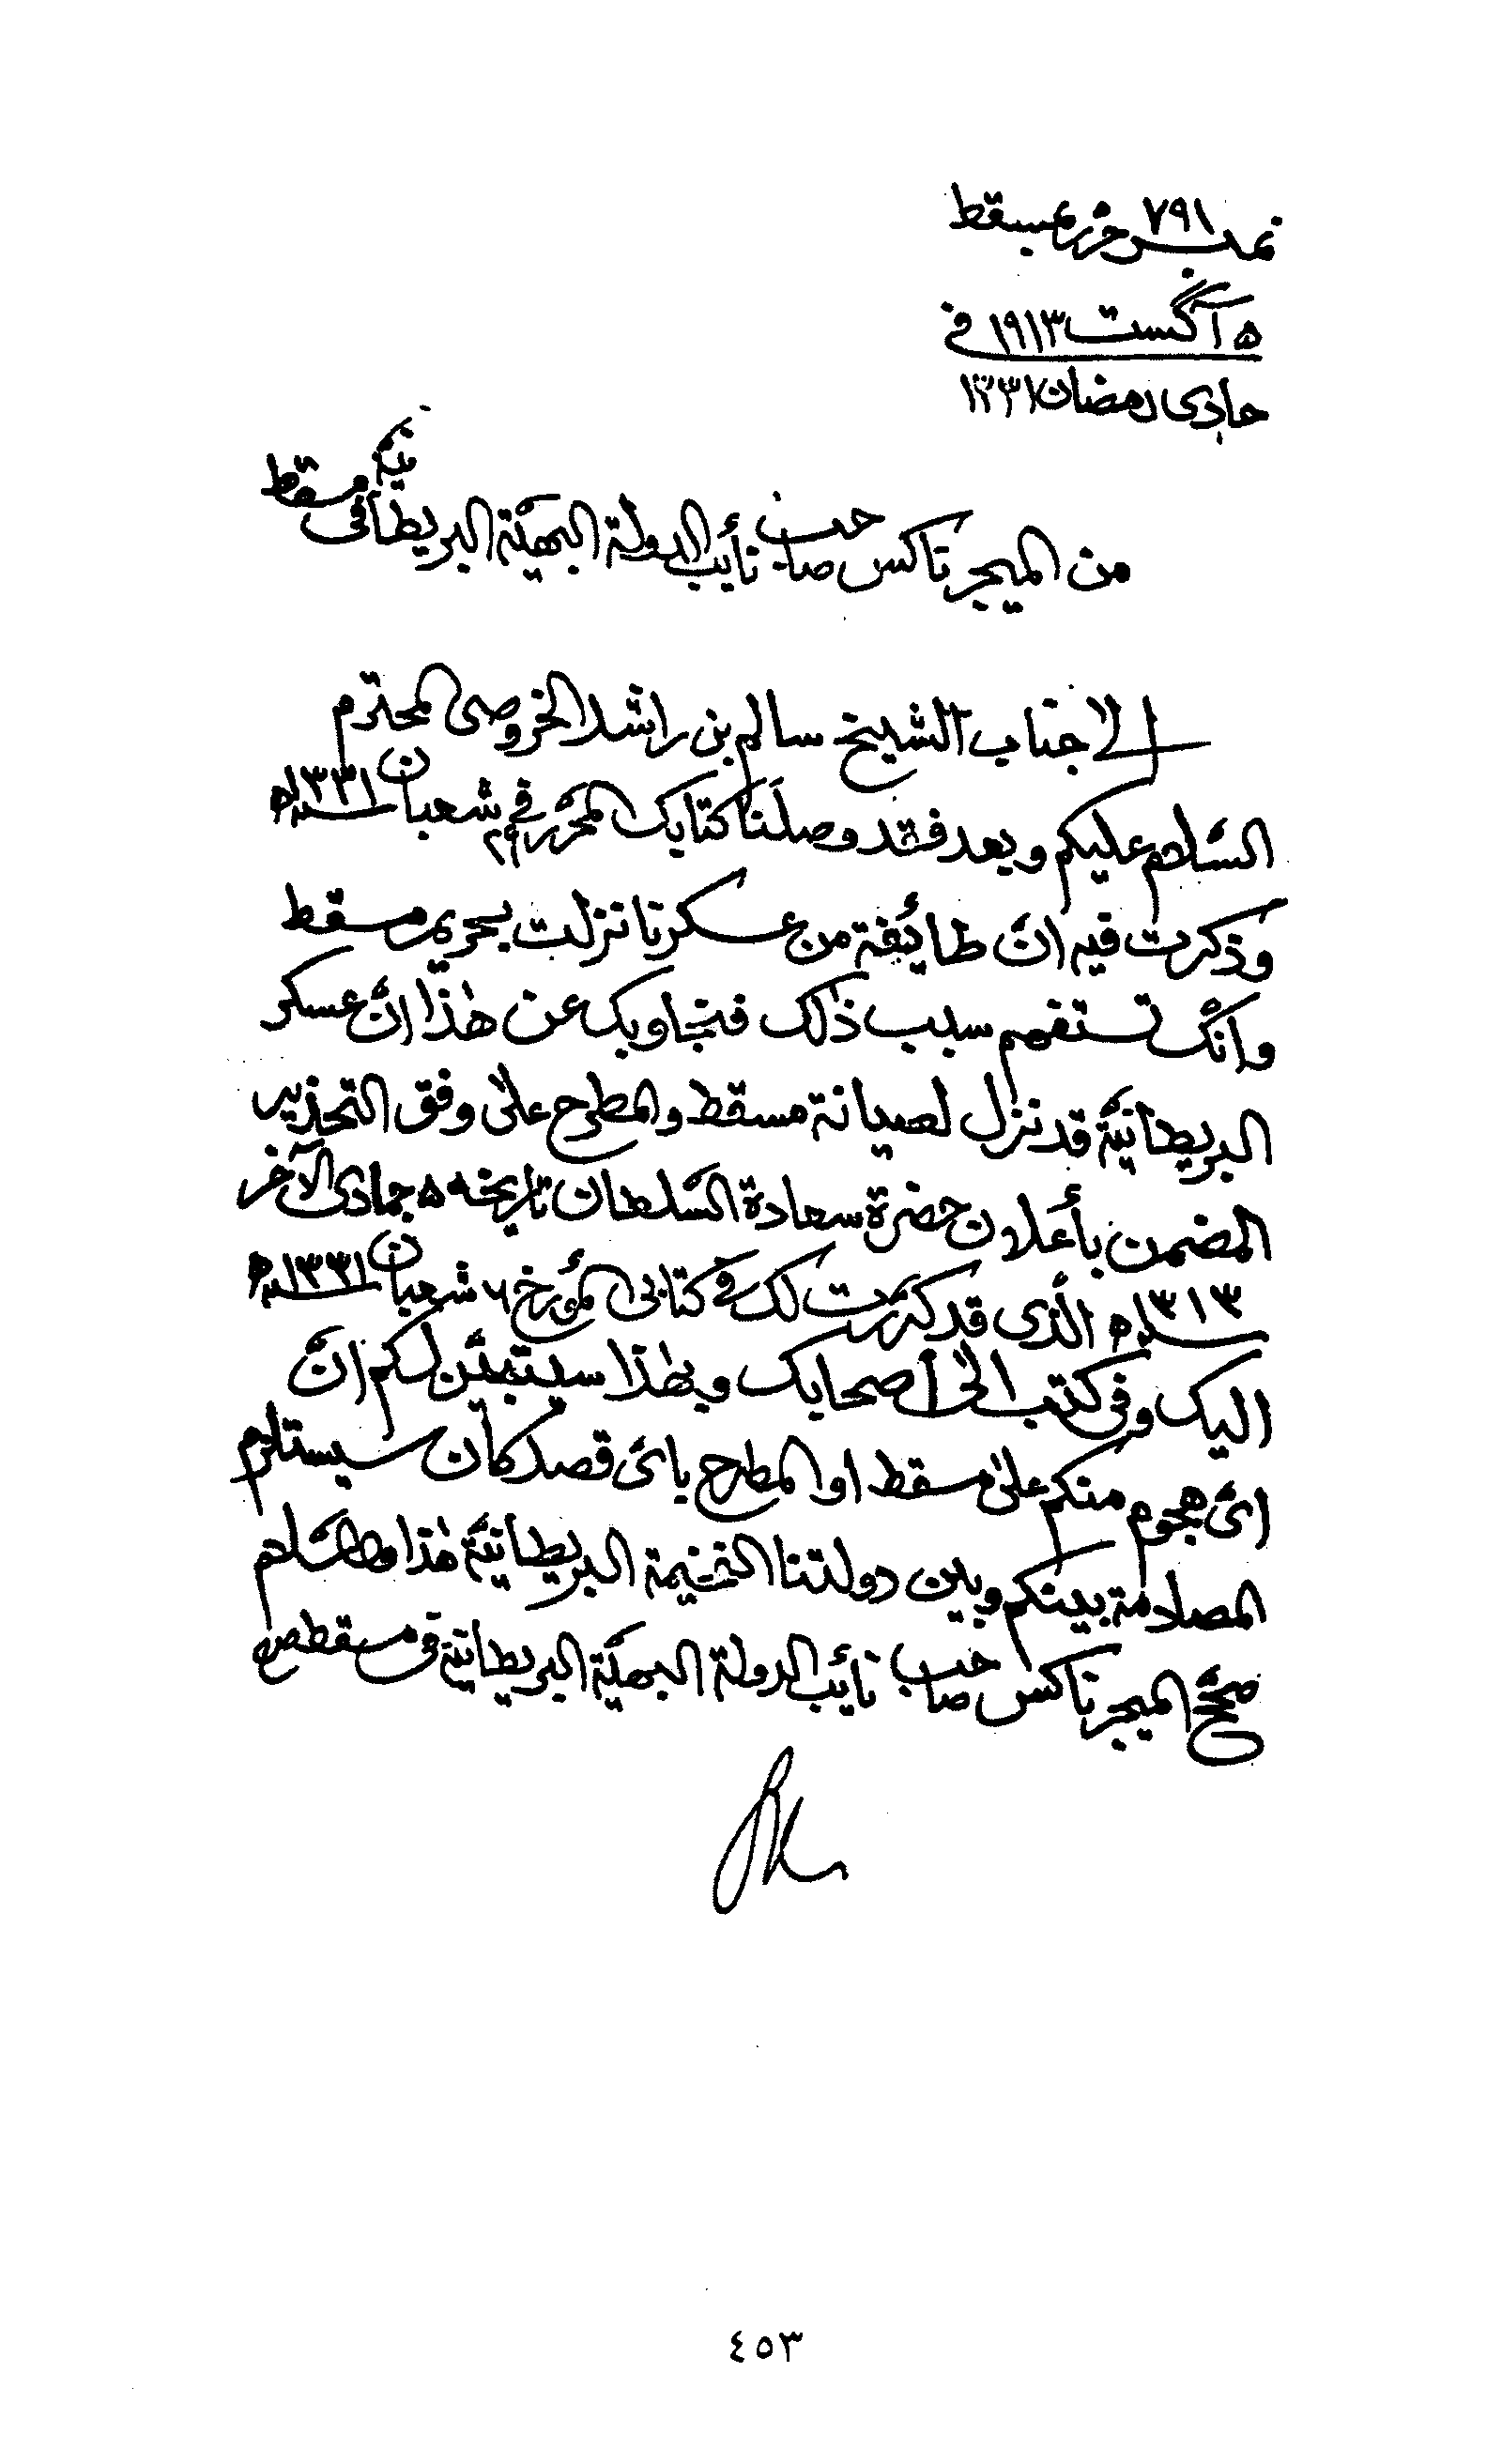 نمبر ٧٩١ حرر عسقط
٥ آگست ١٩١٣ في
حادی رمضان ١٣٣١
من الميجر ناكس صاحب نأيب الدولة البهيّة البريطانية في مسقط
الا جناب الشيخ سالم بن راشد الخروصی المحترم
السّلام عليكم وبعد فقد وصلَنا كتابك المحرّر في ٢٩ شعبان سنه ١٣٣١ه
وذكرت فيه انّ طائيفة من عسكرنا نزلت بحريم مسقط
وانّك تستفهم سبب ذٰلك فنجاوبك عن هٰذا انّ عسكر
البريطانيّة قد نزل لصيانة مسقط والمطرح علیٰ وفق التحذير
المضمن بأعلان حضرة سعادة السّلطان تاريخه ٥ جمادی الآخر
سنه ١٣١٣ه الّذی قد كرّرت لك في كتابی المؤرخ ٦ شعبان سنه ١٣٣١ه
اليك وفی كتب الیٰ أصحابك وبهٰذا سيتبيّن لكم انّ
ایّ هجوم منكم علیٰ مسقط او المطرح بایّ قصد كان سيستلزم
المصادمة بينكم وبين دولتنا الفخيمة البريطانيّة هٰذا والسّلام
صحّ الميجر ناكس صاحب نأيب الدولة البهيّة البريطانيّة فی مسقط
٤٥٣